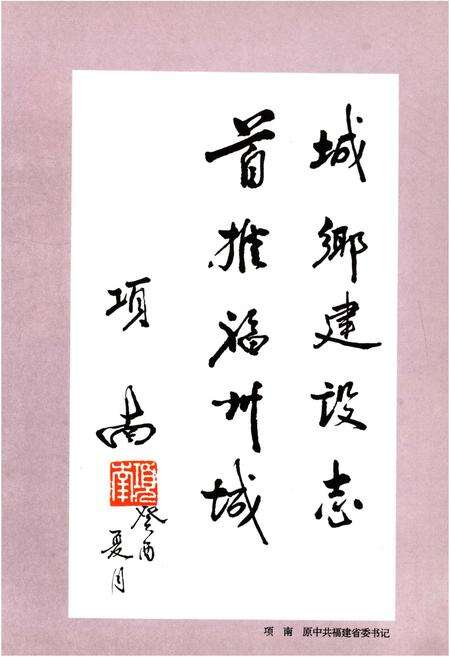 城鄉建设志
首推福州城
项南
項南
癸酉
夏月
项 南 原中共福建省委书记